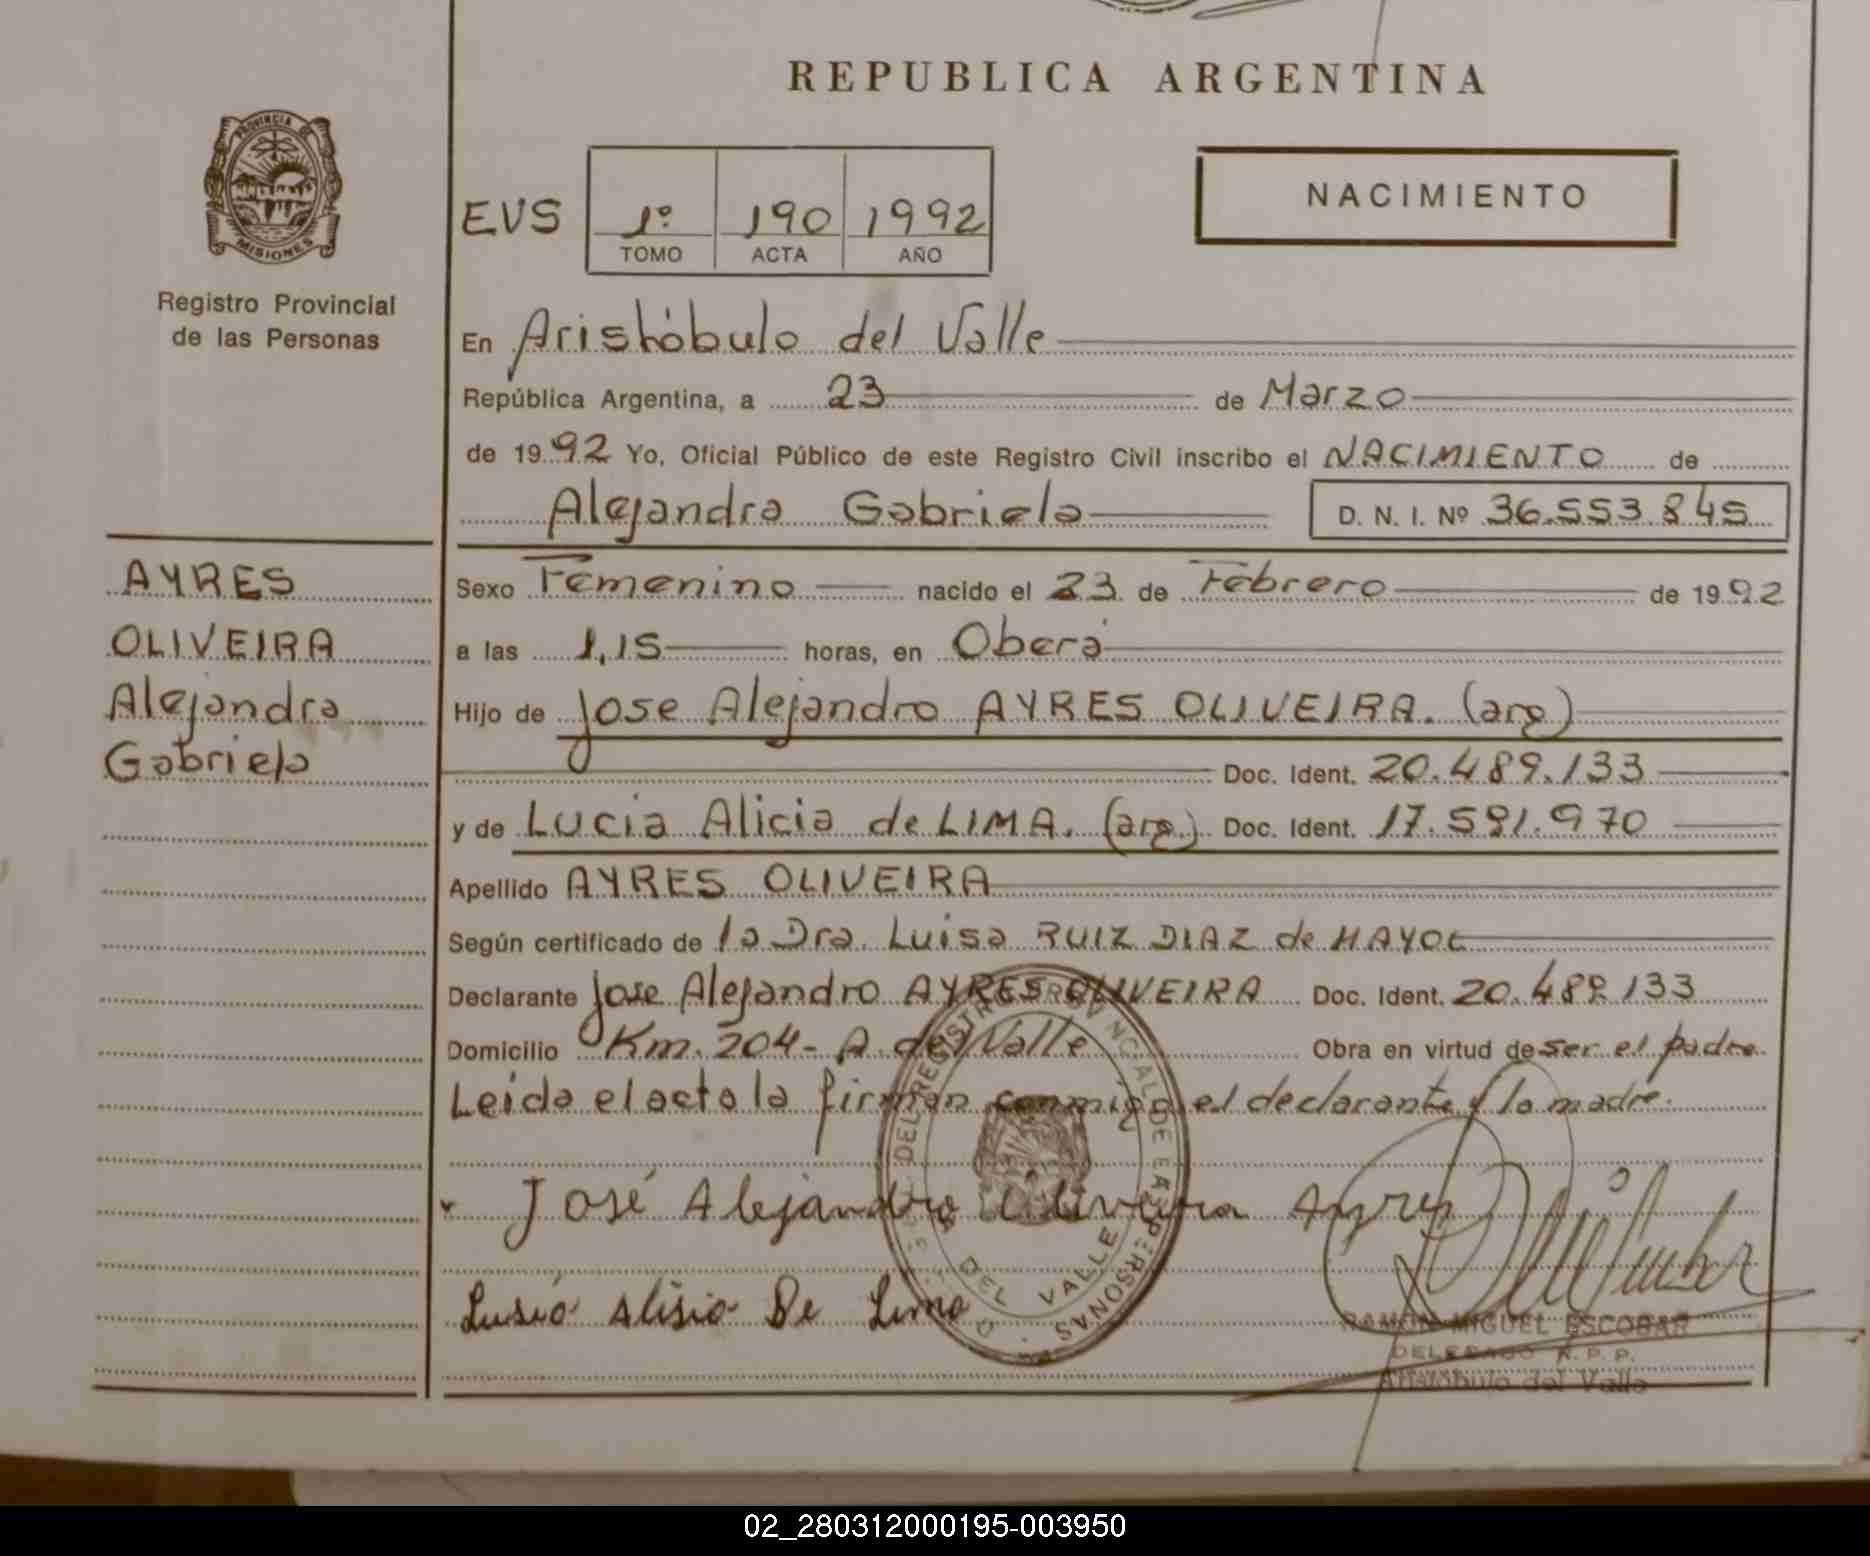 REPUBLICA ARGENTINA
PROVINCIA DE
MISIONES
Registro Provincial
de las Personas
EVS
1º 190 1992
TOMO ACTA AÑO
NACIMIENTO
En Aristóbulo del Valle
República Argentina, a 23 de Marzo
de 1992 Yo, Oficial Público de este Registro Civil inscribo el NACIMIENTO de
Alejandra Gabriela D. N. I. Nº 36.553.845
AYRES
OLIVEIRA
Alejandra
Gabriela
Sexo Femenino nacido el 23 de Febrero de 1992
a las 1,15 horas, en Oberá
Hijo de Jose Alejandro AYRES OLIVEIRA. (arg)
Doc. Ident. 20.489.133
y de Lucia Alicia de LIMA. (arg.) Doc. Ident. 17.591.970
Apellido AYRES OLIVEIRA
Según certificado de la Dra. Luisa RUIZ DIAZ de HAYOL
Declarante Jose Alejandro AYRES OLIVEIRA Doc. Ident. 20.489.133
Domicilio Km. 204- A. del Valle Obra en virtud de ser el padre
Leida el acta la firman conmigo el declarante y la madre.
José Alejandro Oliveira Ayres
Lusia Alisia De Lima
DEL REGISTRO PROVINCIAL DE LAS PERSONAS
DEL VALLE
RAMON MIGUEL ESCOBAR
DELEGADO R. P. P.
Aristóbulo del Valle
02_280312000195-003950